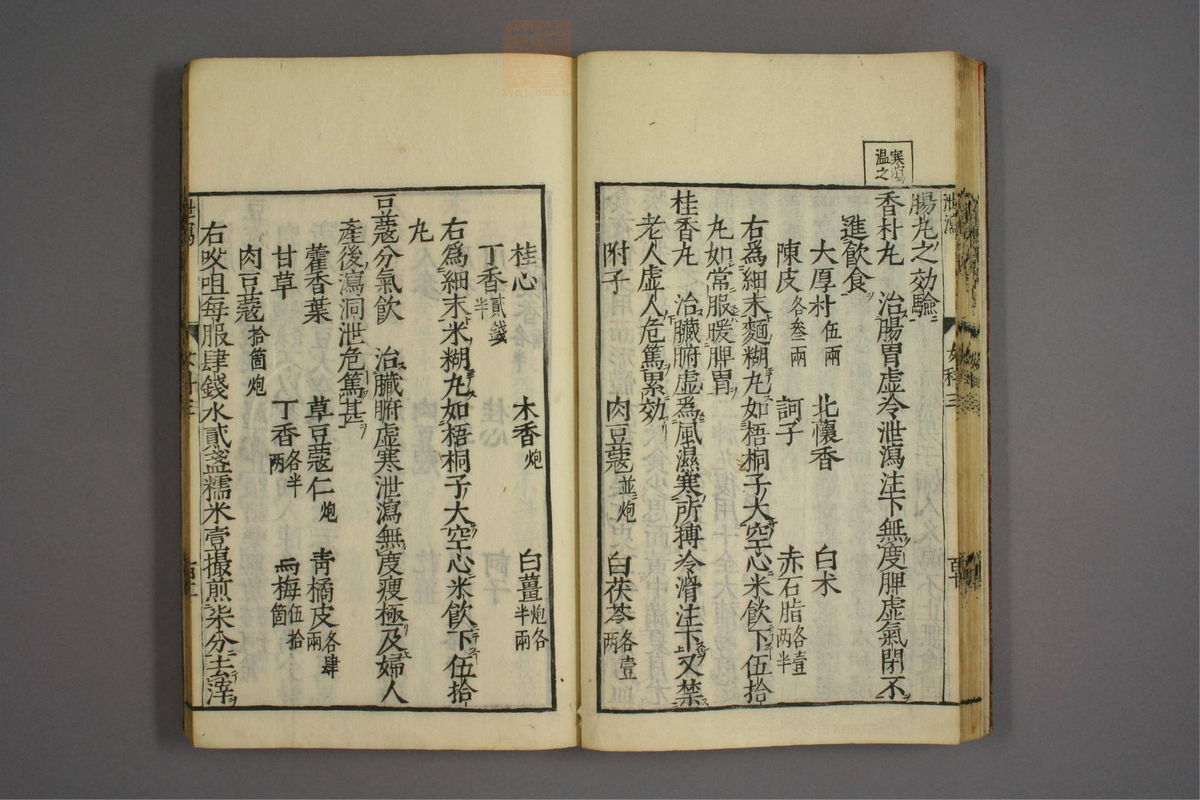 寒瀉
温之
腸丸之効驗
香朴丸　治腸胃虚冷泄瀉注下無度脾虚氣閉不
進飲食
大厚朴伍兩　北懷香　白术
陳皮各叁兩　訶子　赤石脂各壹兩半
右爲細末麵糊丸如梧桐子大空心米飲下伍拾
丸如常服暖脾胃
桂香丸　治臟腑虚爲風濕寒所搏冷滑注下又禁
老人虚人危篤累効
附子　肉豆蔻並炮　白茯苓各壹兩
桂心　木香炮　白薑炮各半兩
丁香貳錢半
右爲細末米糊丸如梧桐子大空心米飲下伍拾
丸
豆蔻分氣飲　治臟腑虚寒泄瀉無度瘦極及婦人
產後瀉洞泄危篤甚
藿香葉　草豆蔻仁炮　靑橘皮各肆兩
甘草　丁香各半兩　烏梅伍拾箇
肉豆蔻拾箇炮
右㕮咀每服肆錢水貳盞糯米壹撮煎柒分去滓